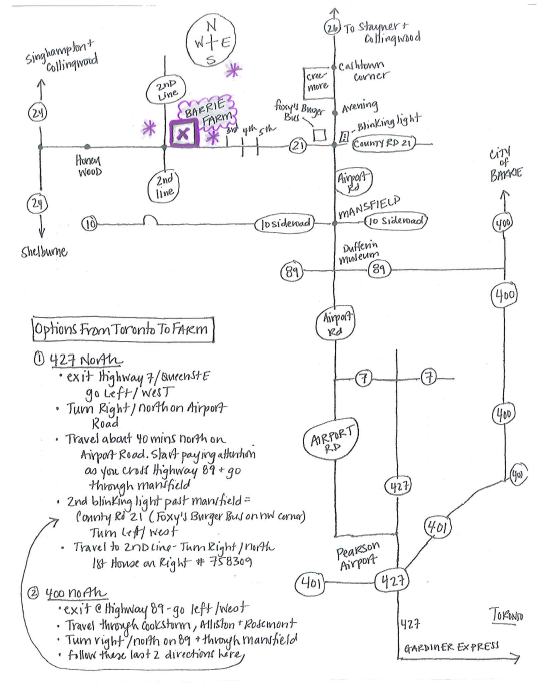 N
W E
S
26 To Stayner +
Collingwood
Singhampton +
Collingwood
Cashtown
Corner
Cree
more
2ND
Line
BARRIE
FARM
Foxy's Burger
Bus
Avening
Blinking light
24
X
3rd 4th 5th
21
County RD 21
Honey
wood
2nd
line
CITY
OF
BARRIE
Airport
Rd
24
MANSFIELD
10
10 sideroad
10 Sideroad
400
Shelburne
Dufferin
Museum
89
89
400
Airport
Rd
Options From Toronto To FARM
1 427 North
• exit Highway 7/Queen St E
go Left/West
• Turn Right/north on Airport
Road
• Travel about 40 mins north on
Airport Road. Start paying attention
as you cross Highway 89 + go
through mansfield
• 2nd blinking light past mansfield =
County Rd 21 (Foxy's Burger Bus on NW corner)
Turn Left/West
• Travel to 2ND Line - Turn Right/north
1st House on Right # 758309
2 400 north
• exit @ Highway 89 - go left/west
• Travel through Cookstown, Alliston + Rosemont
• Turn right/north on 89 + through mansfield
• follow these last 2 directions here
7
7
400
AIRPORT
RD
400
427
401
Pearson
Airport
401
427
427
TORONTO
GARDINER EXPRESS